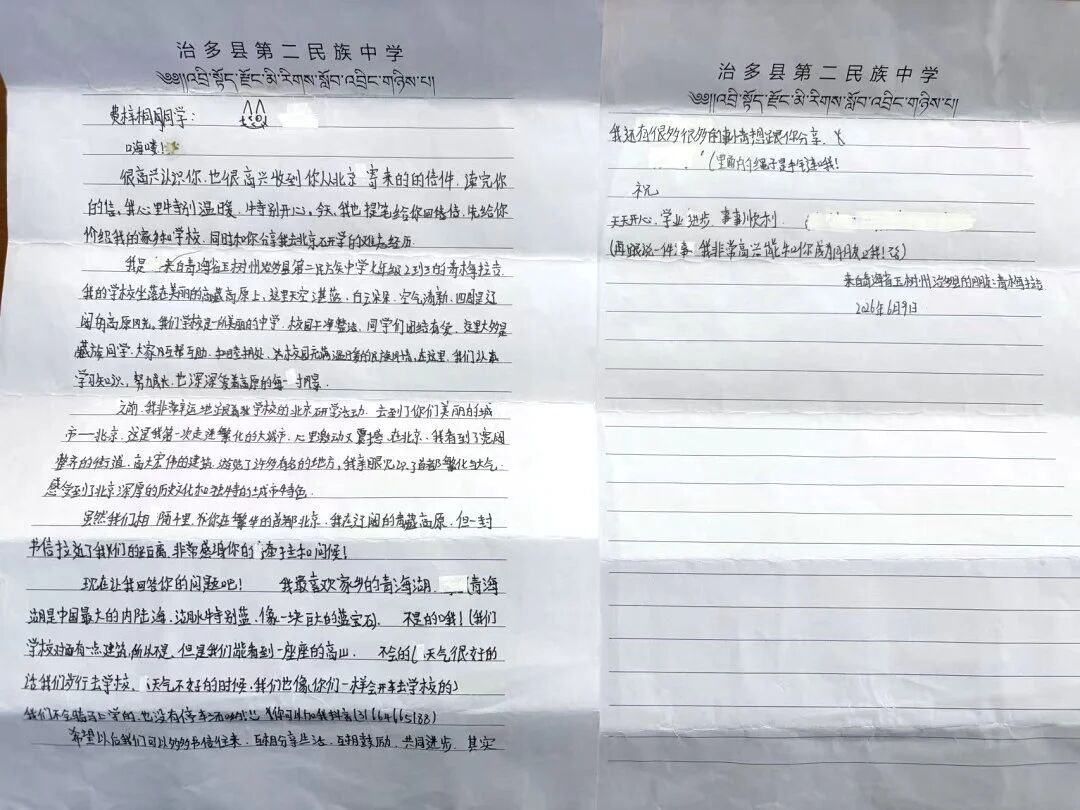 治多县第二民族中学
༄༅།།འབྲི་སྟོད་རྫོང་མི་རིགས་སློབ་འབྲིང་གཉིས་པ།
费梓桐同学：
嗨喽！
很高兴认识你，也很高兴收到你从北京寄来的的信件，读完你
的信，我心里特别温暖，特别开心。今天，我也提笔给你回信，先给你
介绍我的家乡和学校，同时和你分享我去北京研学的难忘经历。
我是来自青海省玉树州治多县第二民族中学七年级2到3的青梅拉吉
我的学校坐落在美丽的高原上，这里天空湛蓝，白云朵朵，空气清新，四周是辽
阔的高原风光。我们学校是一所美丽的中学，校园干净整洁，同学们团结有爱，这里大多是
藏族同学，大家互帮互助，和睦相处，让校园充满温暖的民族风情，在这里，我们认真
学习知识，努力成长，也深深爱着高原的每一
之前，我非常幸运地跟着学校的北京研学活动，去到了你们美丽的城
市——北京，这是我第一次走进繁华的大城市，心里激动又震撼，在北京，我看到了宽阔
整齐的街道，高大宏伟的建筑，游览了许多有名的地方，我亲眼见识了首都繁华与大气，
感受到了北京深厚的历史文化和独特的城市特色。
虽然我们相隔千里，你在繁华的首都北京，我在辽阔的青藏高原，但一封
书信拉近了我们的距离，非常感谢你的牵挂和问候！
现在让我回答你的问题吧！ 我最喜欢家乡的青海湖 (青海
湖是中国最大的内陆海，湖水特别蓝，像一块巨大的蓝宝石)， 不是的哦！(我们
学校对面有一点建筑，所以不是，但是我们能看到一座座的高山， 不会的(天气很好的
话我们步行去学校，天气不好的时候，我们也像你们一样会开车去学校的)
我们不会骑马上学的，也没有停车
希望以后我们可以多多书信往来，互相分享生活，互相鼓励，共同进步，其实
治多县第二民族中学
༄༅།།འབྲི་སྟོད་རྫོང་མི་རིགས་སློབ་འབྲིང་གཉིས་པ།
我还有很多很多的事情想跟你分享，
(里面的绳子是手链哦！
祝
天天开心，学业进步，事事顺利
(再跟说一件事，我非常高兴能和你成为朋友哦！
来自青海省玉树州治多县的朋友：青梅拉吉
2026年6月9日